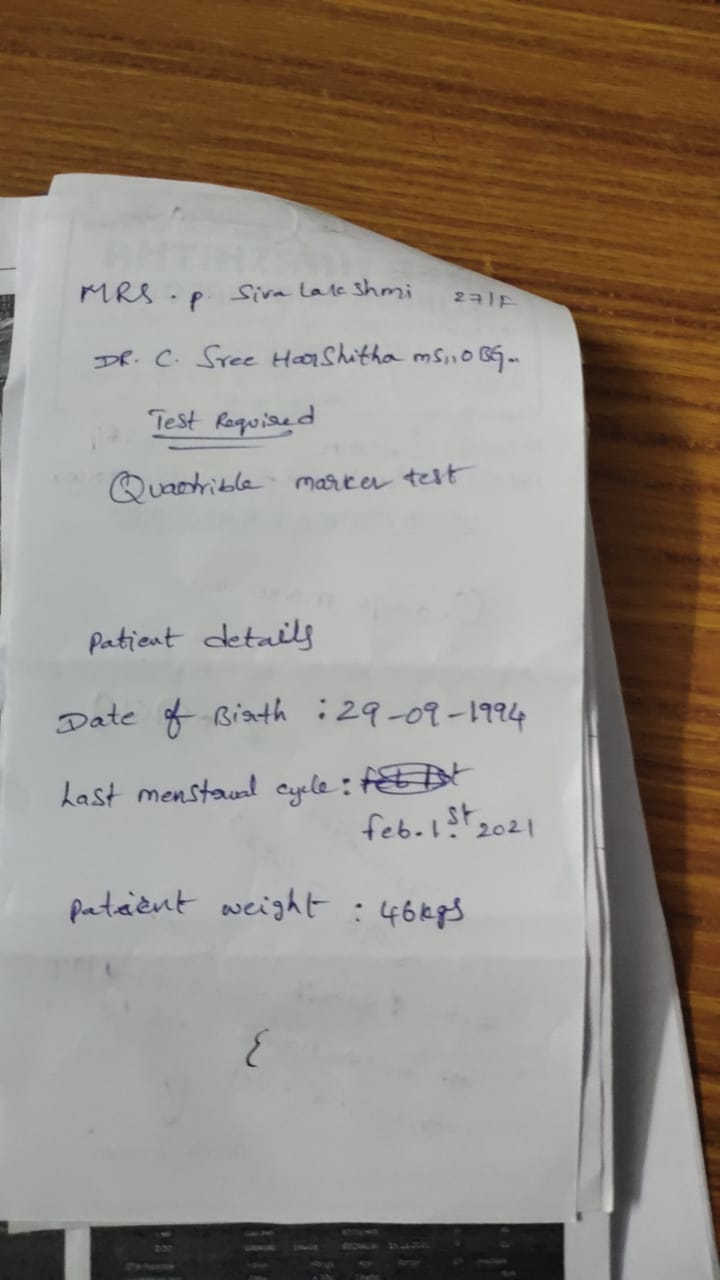 MRS. P. Siva Lakshmi 27/F
DR. C. Sree Harshitha MS,,OBG..
Test Required
Quadrible marker test
Patient details
Date of Birth : 29-09-1994
Last menstural cycle :
feb. 1st 2021
Patient weight : 46kgs